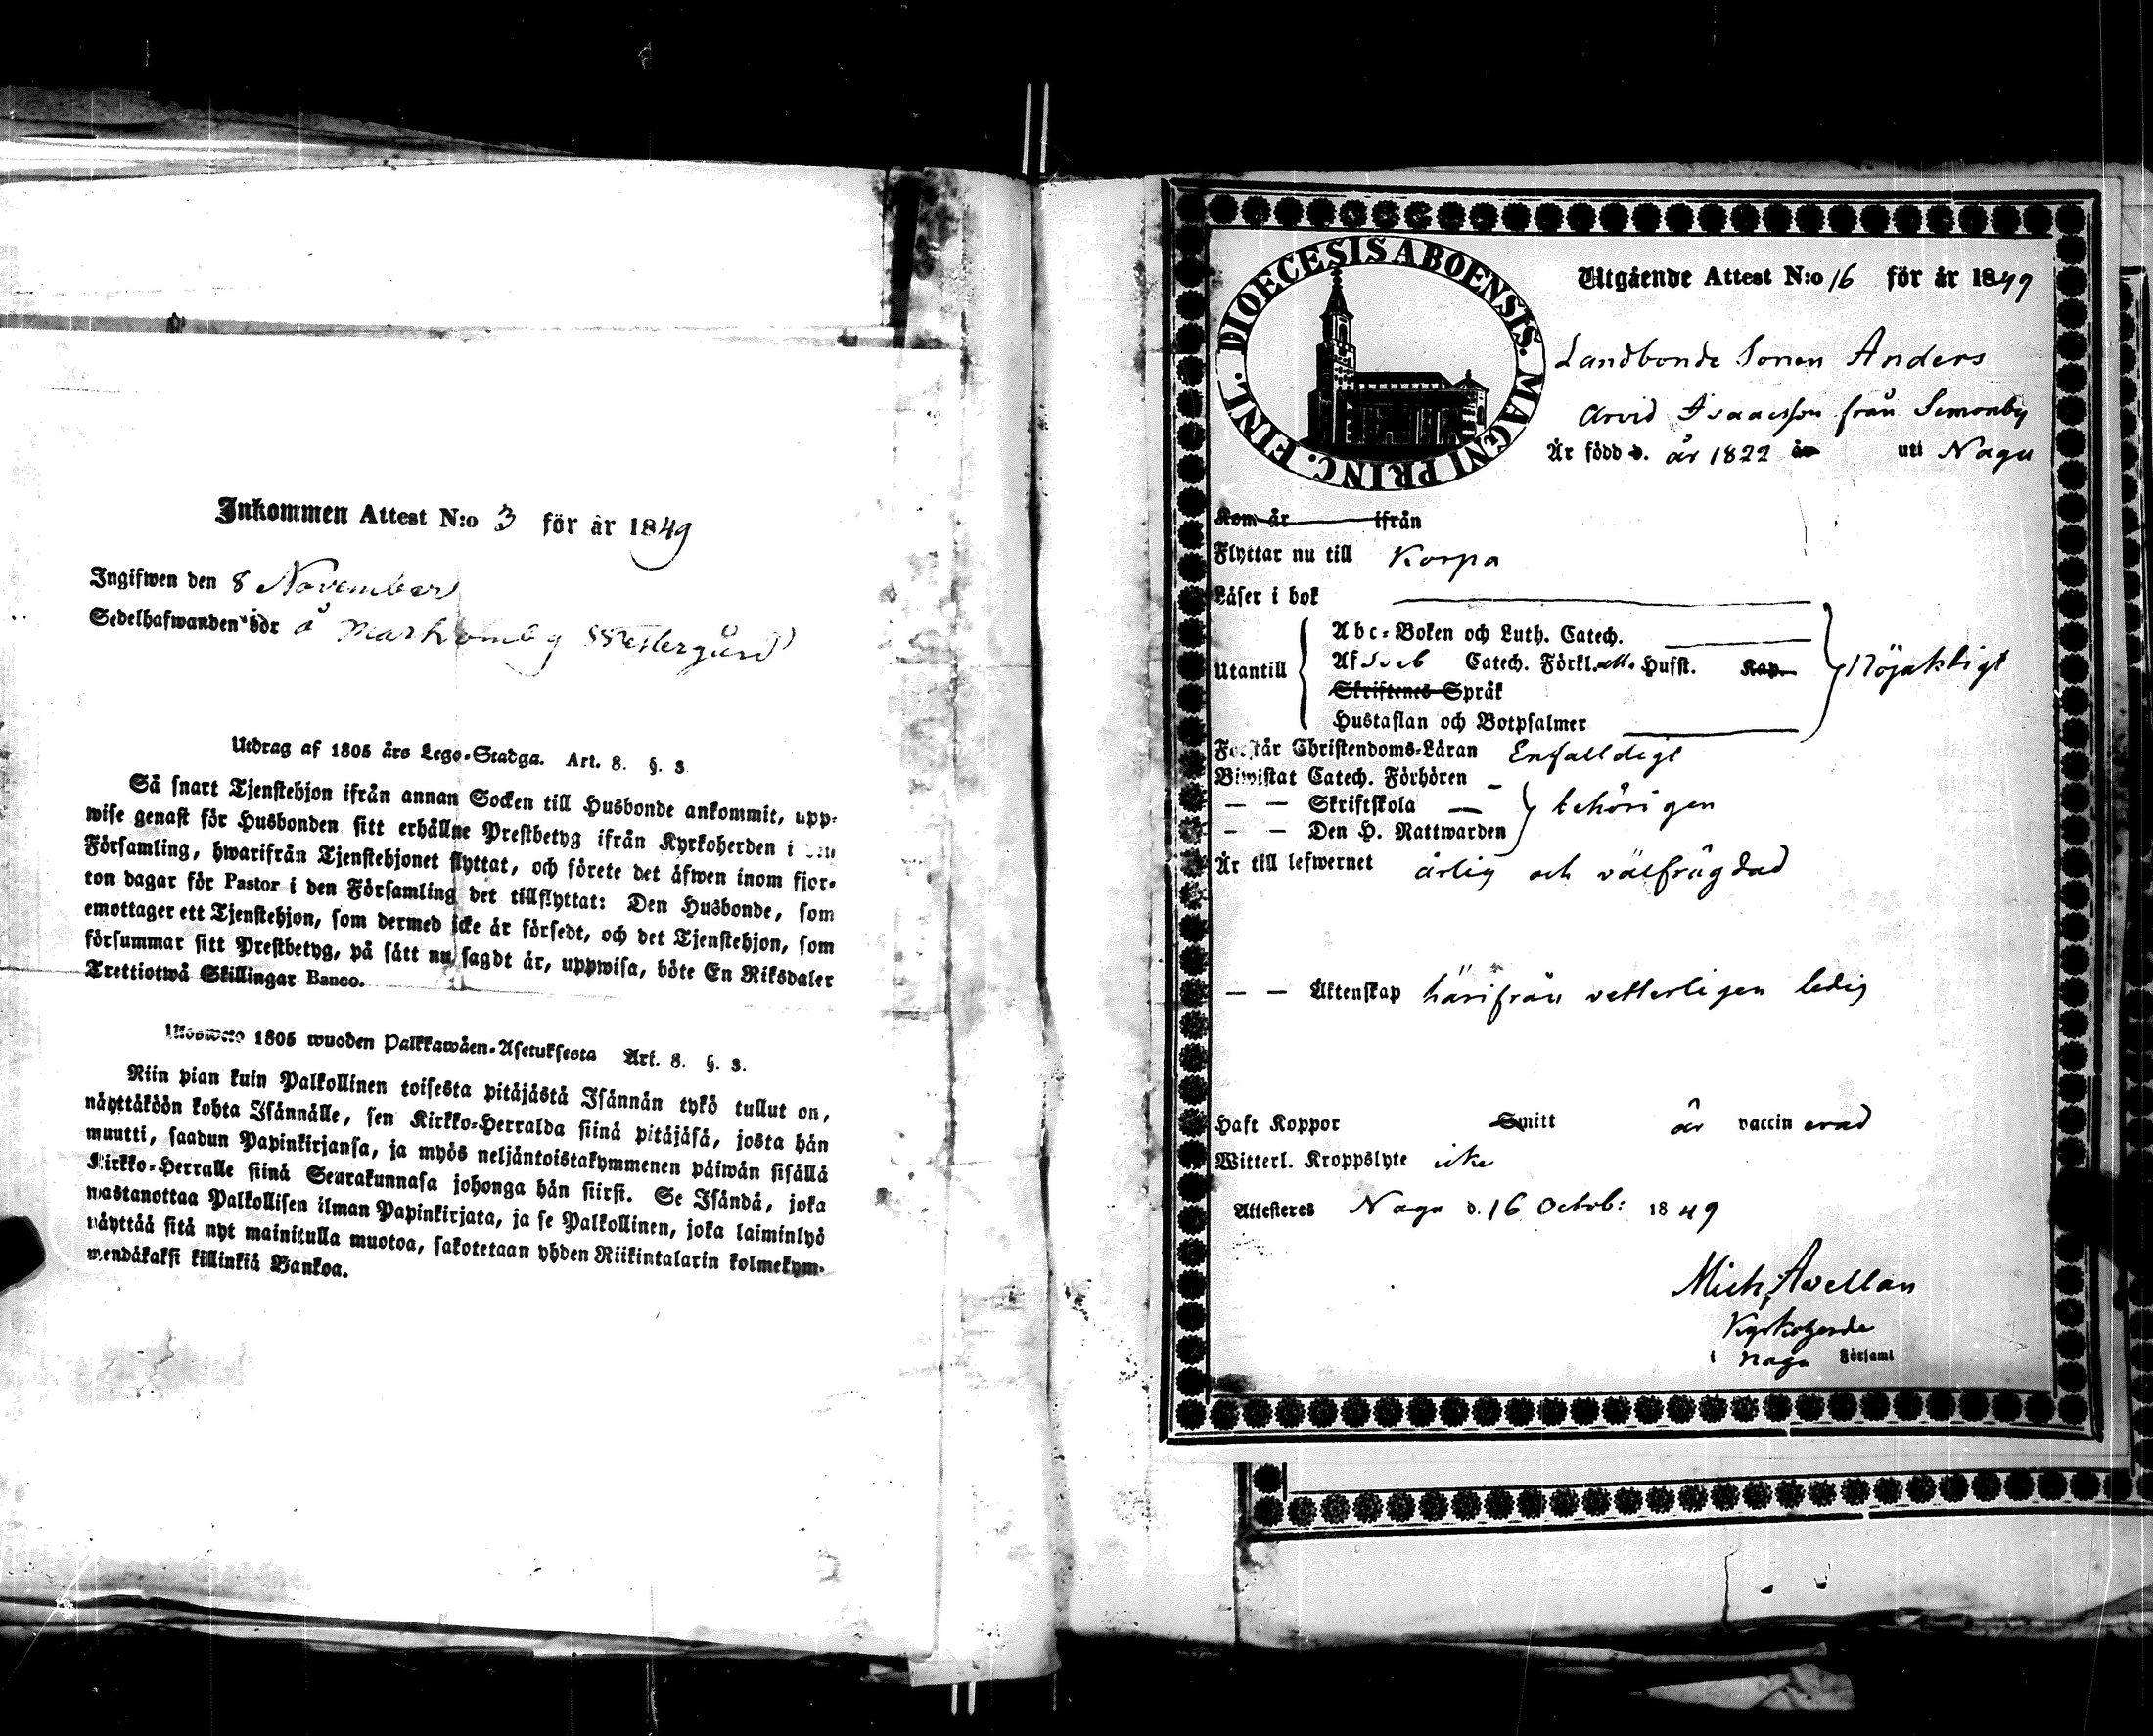 Inkommen Attest N:o 3 för år 1849
Ingifwen den 8 November
Sedelhafwanden bor å Markomby Westergård
Utdrag af 1805 års Lego-Stadga. Art. 8. §. 3.
Så snart Tjenstehjon ifrån annan Socken till Husbonde ankommit, upp-
wise genast för Husbonden sitt erhållne Prestbetyg ifrån Kyrkoherden i
Församling, hwarifrån Tjenstehjonet flyttat, och förete det äfwen inom fjor-
ton dagar för Pastor i den Församling det tillflyttat: Den Husbonde, som
emottager ett Tjenstehjon, som dermed icke är försedt, och det Tjenstehjon, som
försummar sitt Prestbetyg, på sätt nu sagdt är, uppwisa, böte En Riksdaler
Trettiotwå Skillingar Banco.
1805 wuoden Palkkawäen-Asetuksesta Art. 8. §. 3.
Niin pian kuin Palkollinen toisesta pitäjästä Isännän tykö tullut on,
näyttäköön kohta Isännälle, sen Kirkko-Herralda siinä pitäjäsä, josta hän
muutti, saadun Papinkirjansa, ja myös neljäntoistakymmenen päiwän sisällä
Kirkko-Herralle siinä Seurakunnasa johonga hän siirsi. Se Isändä, joka
wastanottaa Palkollisen ilman Papinkirjata, ja se Palkollinen, joka laiminlyö
näyttää sitä nyt mainitulla muotoa, sakotetaan yhden Riikintalarin kolmekym-
wendäkaksi killinkiä Bankoa.
DIOECESIS ABOENSIS. MAGNI PRINC. FINL.
Utgående Attest N:o 16 för år 1849
Landbonde Sonen Anders
Arvid Isaacsson från Simonby
Är född d. år 1822 uti Nagu
Kom år ifrån
Flyttar nu till Korpo
Läser i bok
Utantill
Abc-Boken och Luth. Catech.
Af Sveb Catech. Förkl. Hufst. Kap.
Skriftenes Språk
Hustaflan och Botpsalmer
Nöjaktigt
Förstår Christendoms-Läran Enfaldigt
Biwistat Catech. Förhören –
— — Skriftskola —
— — Den H. Nattwarden
behörigen
Är till lefwernet ärlig och välfrägdad
— — Äktenskap härifrån vetterligen ledig
Haft Koppor Smitt är vaccinerad
Witterl. Kroppslyte icke
Attesteres Nagu d. 16 Octob: 1849
Mich. Avellan
Kyrkoherde
i Nagu Församl